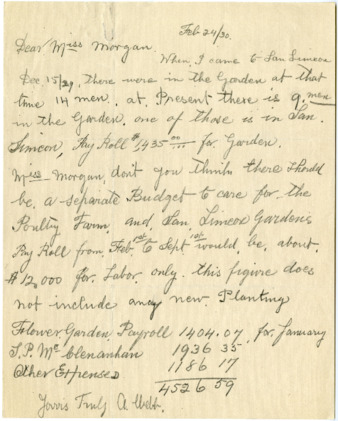 Feb 24/30.
Dear Miss Morgan.
When, I came to San Simeon
Dec, 15/29, There were in the Garden at that
time 14 men. at. Present there is 9. men
in the Garden. one of those is in San.
Simeon, Pay Roll $1435 00 for Garden.
Miss Morgan, don't you think there should
be. a separate Budget to care for. the
Poultry Farm, and San Simeon Gardens
Pay Roll from Feb 1st to Sept 1st would be, about.
$12,000 for. Labor. only. this figure does
not include any new. Planting
Flower Garden. Payroll 1404.07. for January
S.P. Mc Clenanhan 1936 35.
Other Expenses 1186 17
4526 59
Yours Truly A. Webb.